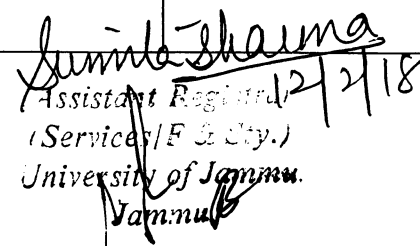 Sumita Sharma
12/2/18
(Assistant Registrar)
(Services/F & Sty.)
University of Jammu.
Jammu